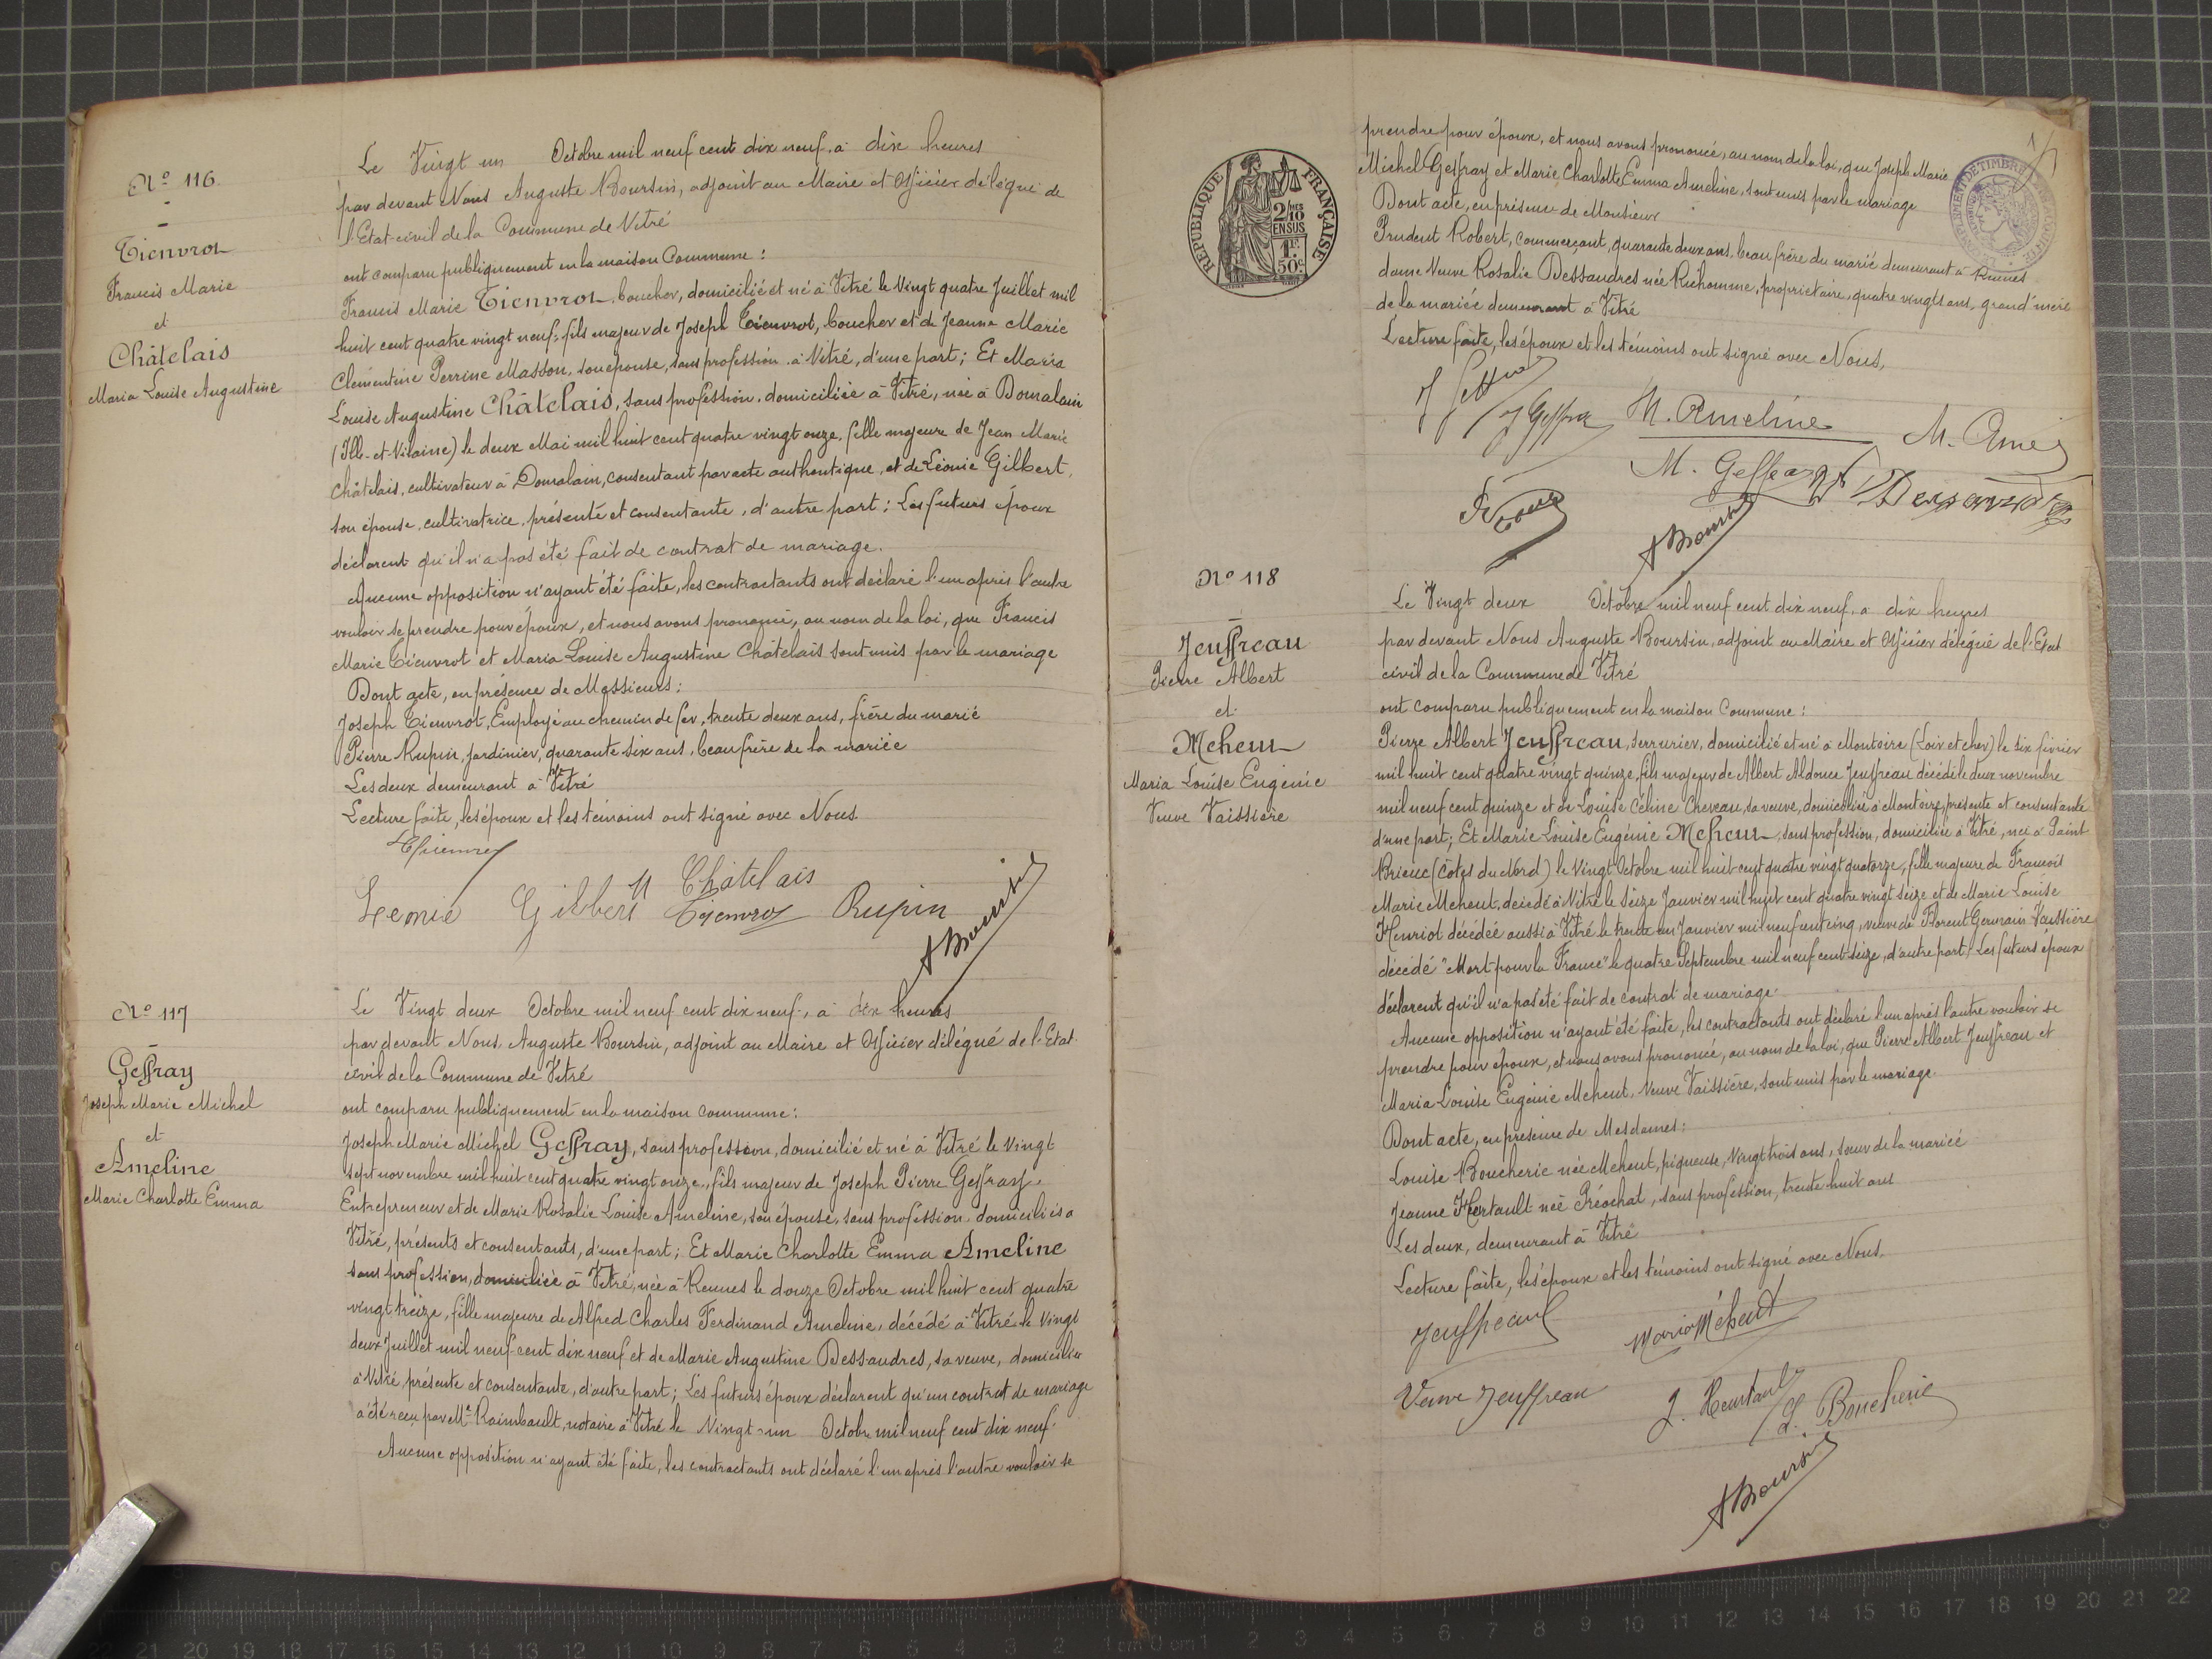 Nº 116
Tienvrot
Francis Marie
et
Châtelais
Maria Louise Augustine
Le Vingt un Octobre mil neuf cent dix neuf, à dix heures
par devant Nous Auguste Boursin, adjoint au Maire et Officier délégué de
l'Etat civil de la Commune de Vitré
ont comparu publiquement en la maison Commune :
Francis Marie Tienvrot, boucher, domicilié et né à Vitré le Vingt quatre Juillet mil
huit cent quatre vingt neuf, fils majeur de Joseph Tienvrot, boucher et de Jeanne Marie
Clémentine Perrine Masson, son épouse, sans profession, à Vitré, d'une part ; Et Maria
Louise Augustine Châtelais, sans profession, domiciliée à Vitré, née à Domalain
(Ille-et-Vilaine) le deux Mai mil huit cent quatre vingt onze, fille majeure de Jean Marie
Châtelais, cultivateur à Domalain, consentant par acte authentique, et de Léonie Gilbert,
son épouse, cultivatrice, présente et consentante, d'autre part ; Les futurs époux
déclarent qu'il n'a pas été fait de contrat de mariage.
Aucune opposition n'ayant été faite, les contractants ont déclaré l'un après l'autre
vouloir se prendre pour époux, et nous avons prononcé, au nom de la loi, que Francis
Marie Tienvrot et Maria Louise Augustine Châtelais sont unis par le mariage
Dont acte, en présence de Messieurs :
Joseph Tienvrot, Employé au chemin de fer, trente deux ans, frère du marié
Pierre Rupin, jardinier, quarante six ans, beau frère de la mariée
Les deux demeurant à Vitré
Lecture faite, les époux et les témoins ont signé avec Nous.
Tienvrot
M Châtelais
Leonie Gilbert Tienvrot Rupin
ABoursin
Nº 117
Geffray
Joseph Marie Michel
et
Ameline
Marie Charlotte Emma
Le Vingt deux Octobre mil neuf cent dix neuf, à dix heures
par devant Nous, Auguste Boursin, adjoint au Maire et Officier délégué de l'Etat
civil de la Commune de Vitré
ont comparu publiquement en la maison commune :
Joseph Marie Michel Geffray, sans profession, domicilié et né à Vitré le Vingt
sept novembre mil huit cent quatre vingt onze, fils majeur de Joseph Pierre Geffray,
Entrepreneur et de Marie Rosalie Louise Ameline, son épouse, sans profession, domiciliés à
Vitré, présents et consentants, d'une part ; Et Marie Charlotte Emma Ameline
sans profession, domiciliée à Vitré, née à Rennes le douze Octobre mil huit cent quatre
vingt treize, fille majeure de Alfred Charles Ferdinand Ameline, décédé à Vitré le Vingt
deux Juillet mil neuf cent dix neuf et de Marie Augustine Dessandres, sa veuve, domiciliée
à Vitré, présente et consentante, d'autre part ; Les futurs époux déclarent qu'un contrat de mariage
a été reçu par Me Raimbault, notaire à Vitré le Vingt-un Octobre mil neuf cent dix neuf.
Aucune opposition n'ayant été faite, les contractants ont déclaré l'un après l'autre vouloir se
REPUBLIQUE FRANÇAISE
2/10MES
EN SUS
1F.
50c.
prendre pour époux, et nous avons prononcé, au nom de la loi, que Joseph Marie
Michel Geffray et Marie Charlotte Emma Ameline, sont unis par le mariage
Dont acte, en présence de Monsieur
Prudent Robert, commerçant, quarante deux ans, beau frère du marié demeurant à Rennes
dame Veuve Rosalie Dessandres née Richomme, propriétaire, quatre vingts ans, grand'mère
de la mariée demeurant à Vitré
Lecture faite, les époux et les témoins ont signé avec Nous,
J Geffray
M. Ameline
M. Geffray
ABoursin
Nº 118
Jeuffreau
Pierre Albert
et
Meheut
Maria Louise Eugénie
Veuve Vaissière
Le Vingt deux Octobre mil neuf cent dix neuf, à dix heures
par devant Nous Auguste Boursin, adjoint au Maire et Officier délégué de l'Etat
civil de la Commune de Vitré
ont comparu publiquement en la maison Commune :
Pierre Albert Jeuffreau, serrurier, domicilié et né à Montoire (Loir et cher) le six février
mil huit cent quatre vingt quinze, fils majeur de Albert Aldonce Jeuffreau décédé le deux novembre
mil neuf cent quinze et de Louise Céline Cheveau, sa veuve, domiciliée à Montoire, présente et consentante
d'une part ; Et Marie Louise Eugénie Meheut, sans profession, domiciliée à Vitré, née à Saint
Brieuc (Côtes du Nord) le Vingt Octobre mil huit cent quatre vingt quatorze, fille majeure de François
Marie Meheut, décédé à Vitré le Seize Janvier mil huit cent quatre vingt seize et de Marie Louise
Henriot décédée aussi à Vitré le trente un Janvier mil neuf cent cinq, veuve de Florent Germain Vaissière
décédé "Mort pour la France" le quatre Septembre mil neuf cent seize, d'autre part ; Les futurs époux
déclarent qu'il n'a pas été fait de contrat de mariage.
Aucune opposition n'ayant été faite, les contractants ont déclaré l'un après l'autre vouloir se
prendre pour époux, et nous avons prononcé, au nom de la loi, que Pierre Albert Jeuffreau et
Maria Louise Eugénie Meheut, Veuve Vaissière, sont unis par le mariage.
Dont acte, en présence de Mesdames :
Louise Boucherie née Meheut, piqueuse, Vingt trois ans, soeur de la mariée
Jeanne Hertault née Préochat, sans profession, trente huit ans
Les deux, demeurant à Vitré
Lecture faite, les époux et les témoins ont signé avec Nous.
Jeuffreau
Maria Méheut
Veuve Jeuffreau
J. Heurtault
L. Boucherie
ABoursin